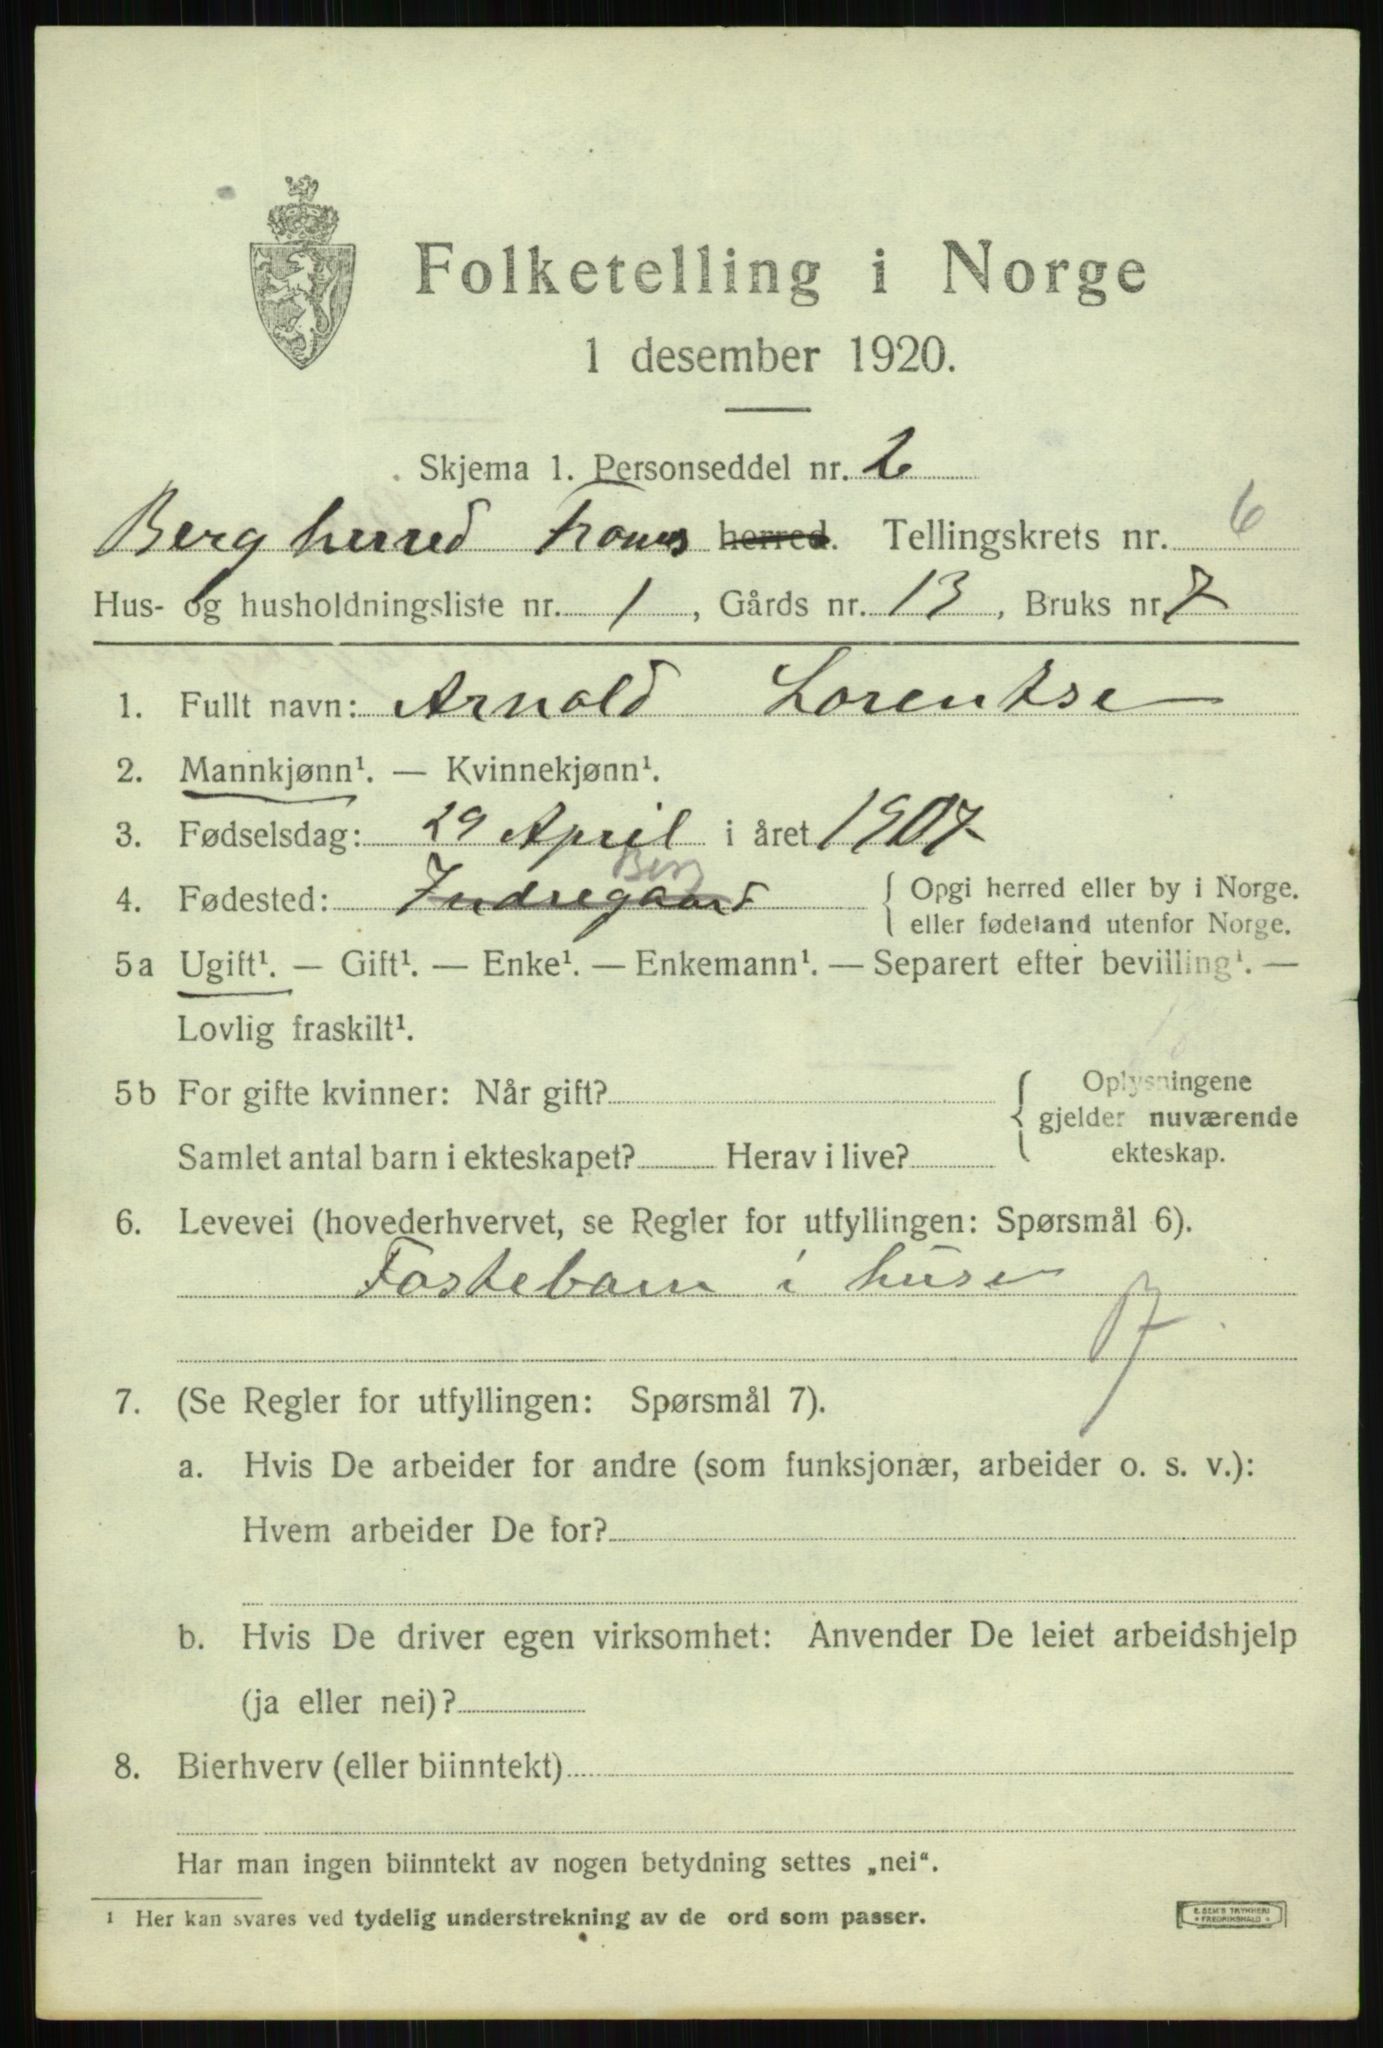 Folketelling i Norge
1 desember 1920.
Skjema 1. Personseddel nr. 2
Berg herred Troms herred. Tellingskrets nr. 6
Hus- og husholdningsliste nr. 1, Gårds nr. 13, Bruks nr. 7
1. Fullt navn: Arnold Lorentse
2. Mannkjønn¹. — Kvinnekjønn¹.
3. Fødselsdag: 29 April i året 1907
Berg
4. Fødested: Indregaard { Opgi herred eller by i Norge.
eller fødeland utenfor Norge.
5a Ugift¹. — Gift¹. — Enke¹. — Enkemann¹. — Separert efter bevilling¹. —
Lovlig fraskilt¹.
5b For gifte kvinner: Når gift? { Oplysningene
gjelder nuværende
Samlet antal barn i ekteskapet? Herav i live? ekteskap.
6. Levevei (hovederhvervet, se Regler for utfyllingen: Spørsmål 6).
Fostebarn i huse
7. (Se Regler for utfyllingen: Spørsmål 7).
a. Hvis De arbeider for andre (som funksjonær, arbeider o. s. v.):
Hvem arbeider De for?
b. Hvis De driver egen virksomhet: Anvender De leiet arbeidshjelp
(ja eller nei)?
8. Bierhverv (eller biinntekt)
Har man ingen biinntekt av nogen betydning settes „nei“.
¹ Her kan svares ved tydelig understrekning av de ord som passer.
E. SEM'S TRYKKERI
FREDRIKSHALD